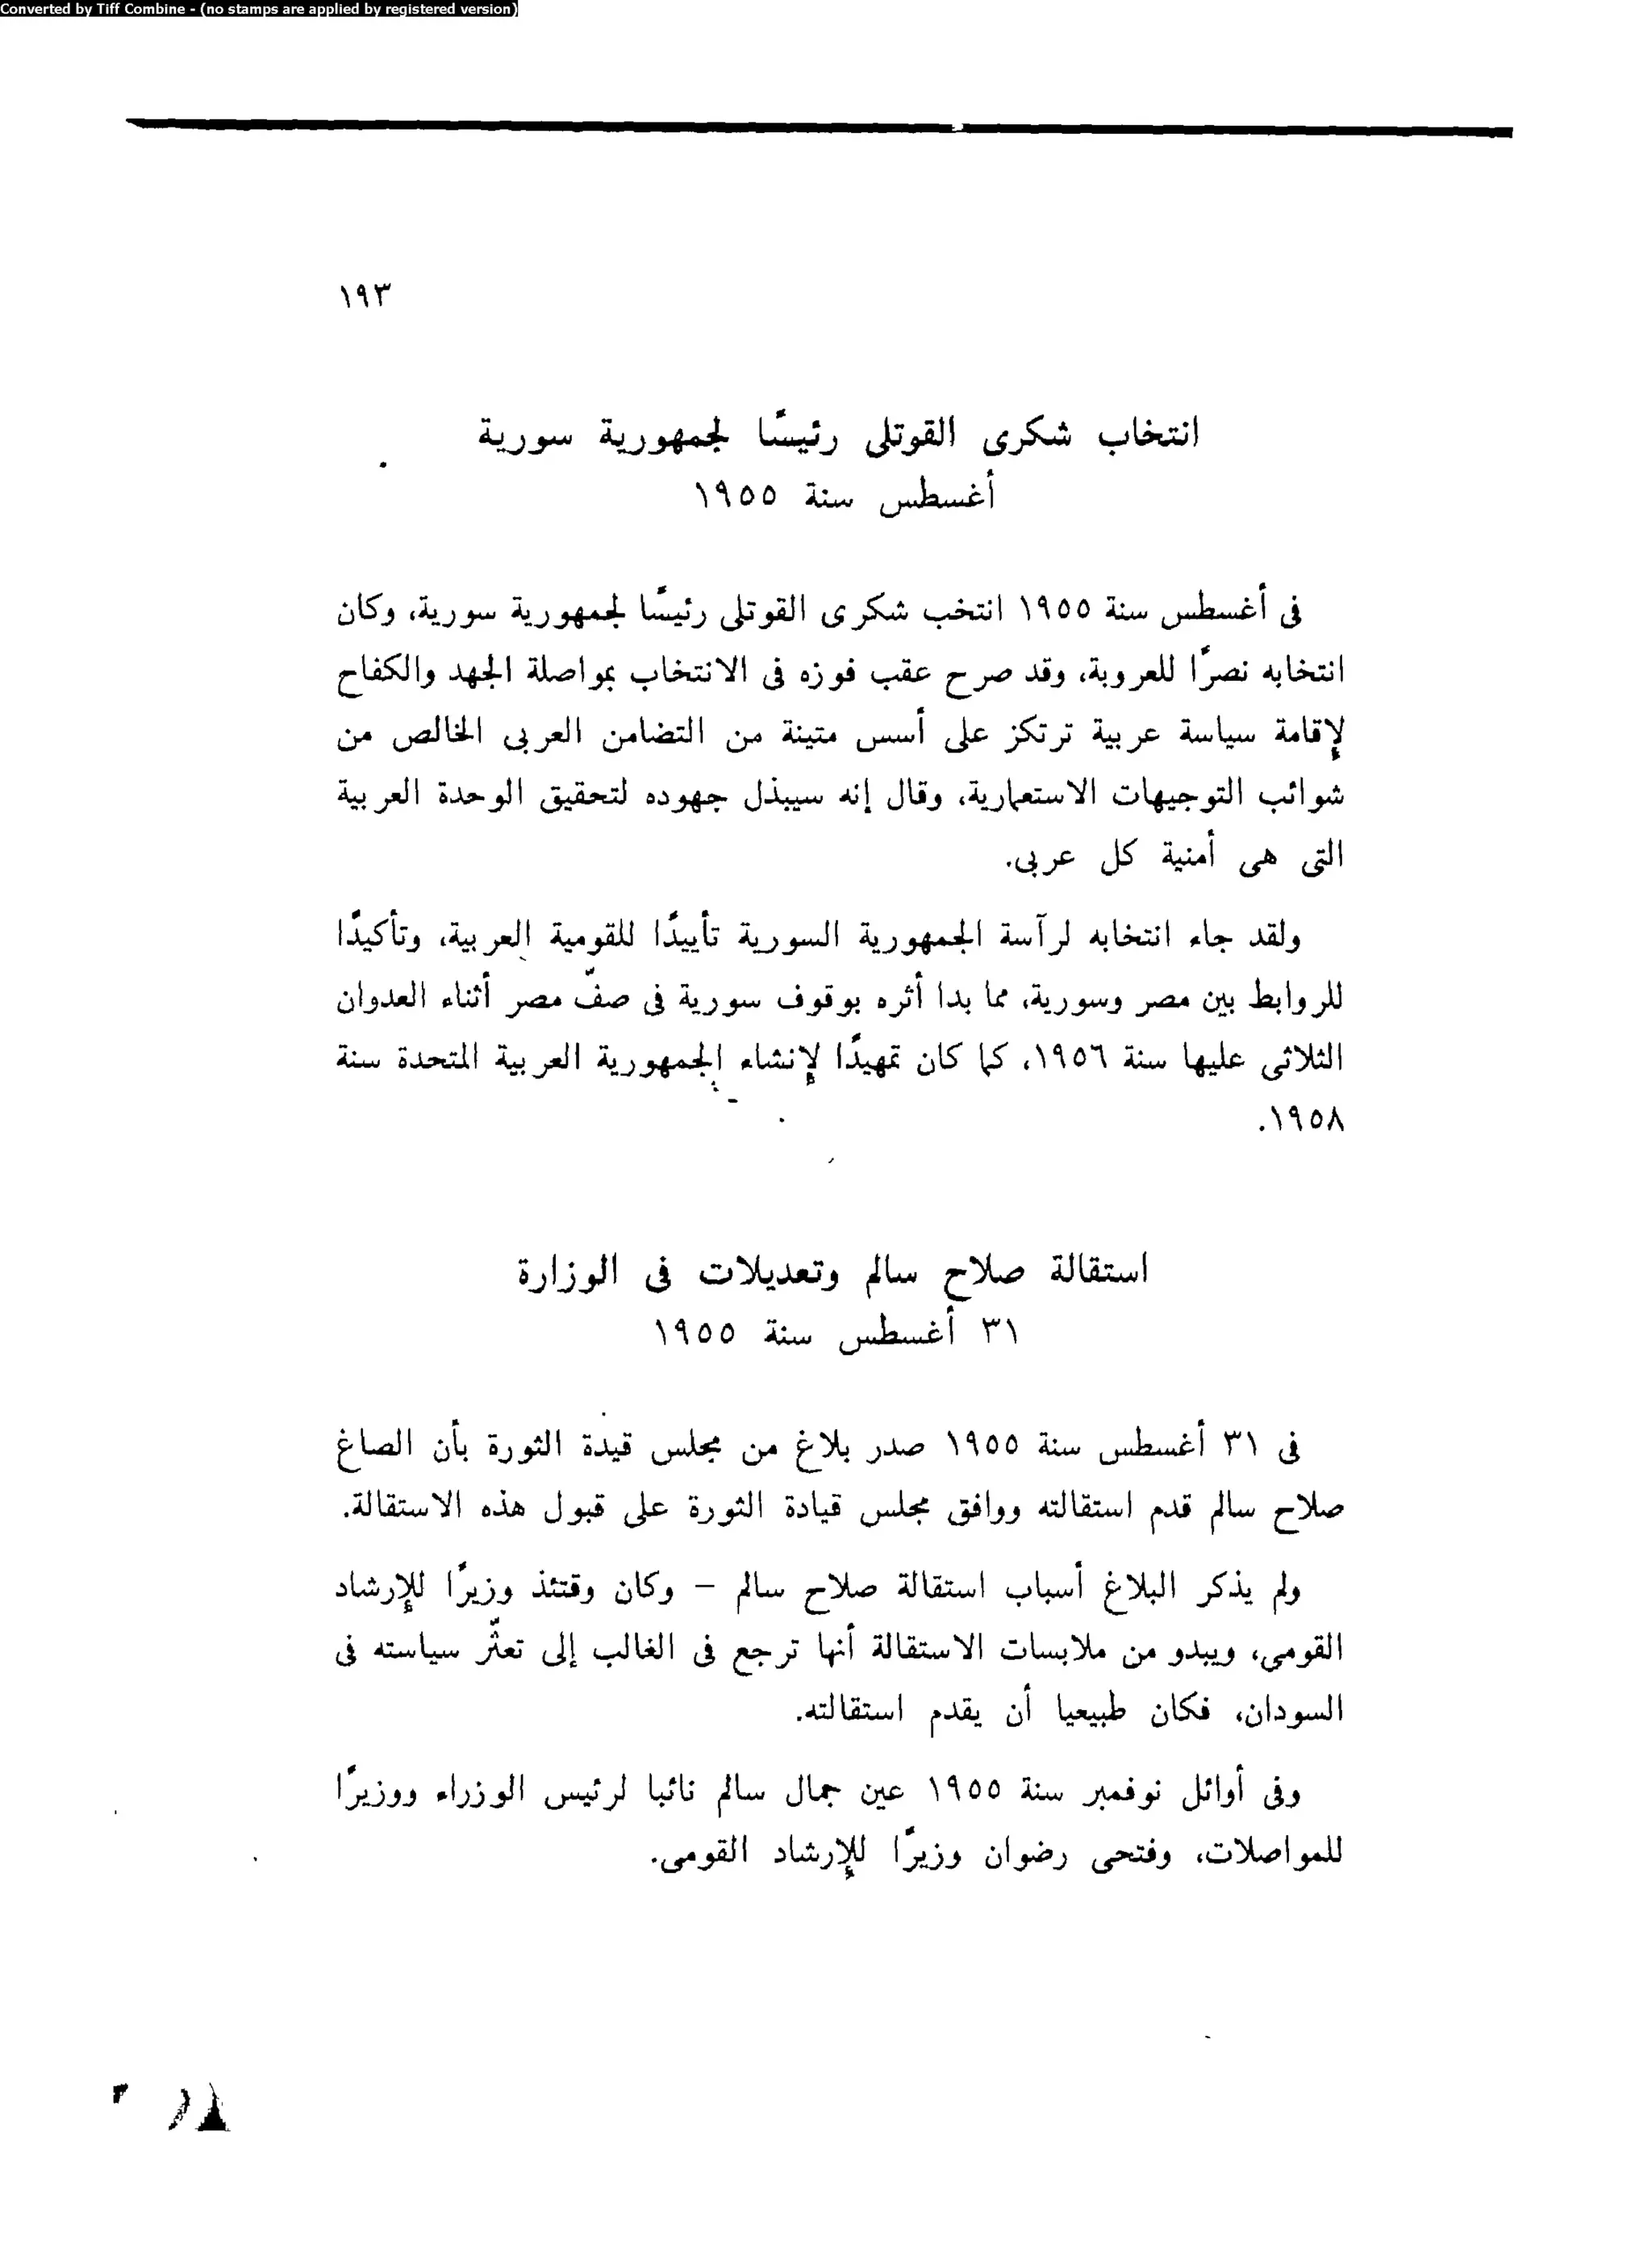 Converted by Tiff Combine - (no stamps are applied by registered version)
١٩٣
انتخاب شكرى القوتلى رئيسًا لجمهورية سورية
أغسطس سنة ١٩٥٥
فى أغسطس سنة ١٩٥٥ انتخب شكرى القوتلى رئيسًا لجمهورية سورية، وكان
انتخابه نصرًا للعروبة، وقد صرح عقب فوزه فى الانتخاب بمواصلة الجهد والكفاح
لإقامة سياسة عربية ترتكز على أسس متينة من التضامن العربى الخالص من
شوائب التوجيهات الاستعمارية، وقال إنه سيبذل جهوده لتحقيق الوحدة العربية
التى هى أمنية كل عربى.
ولقد جاء انتخابه لرآسة الجمهورية السورية تأييدًا للقومية العربية، وتأكيدًا
للروابط بين مصر وسورية، مما بدا أثره بوقوف سورية فى صفّ مصر أثناء العدوان
الثلاثى عليها سنة ١٩٥٦، كما كان تمهيدًا لإنشاء الجمهورية العربية المتحدة سنة
١٩٥٨.
استقالة صلاح سالم وتعديلات فى الوزارة
٣١ أغسطس سنة ١٩٥٥
فى ٣١ أغسطس سنة ١٩٥٥ صدر بلاغ من مجلس قيدة الثورة بأن الصاغ
صلاح سالم قدم استقالته ووافق مجلس قيادة الثورة على قبول هذه الاستقالة.
ولم يذكر البلاغ أسباب استقالة صلاح سالم – وكان وقتئذ وزيرًا للإرشاد
القومى، ويبدو من ملابسات الاستقالة أنها ترجع فى الغالب إلى تعثّر سياسته فى
السودان، فكان طبيعيا أن يقدم استقالته.
وفى أوائل نوفمبر سنة ١٩٥٥ عين جمال سالم نائبا لرئيس الوزراء ووزيرًا
للمواصلات، وفتحى رضوان وزيرًا للإرشاد القومى.